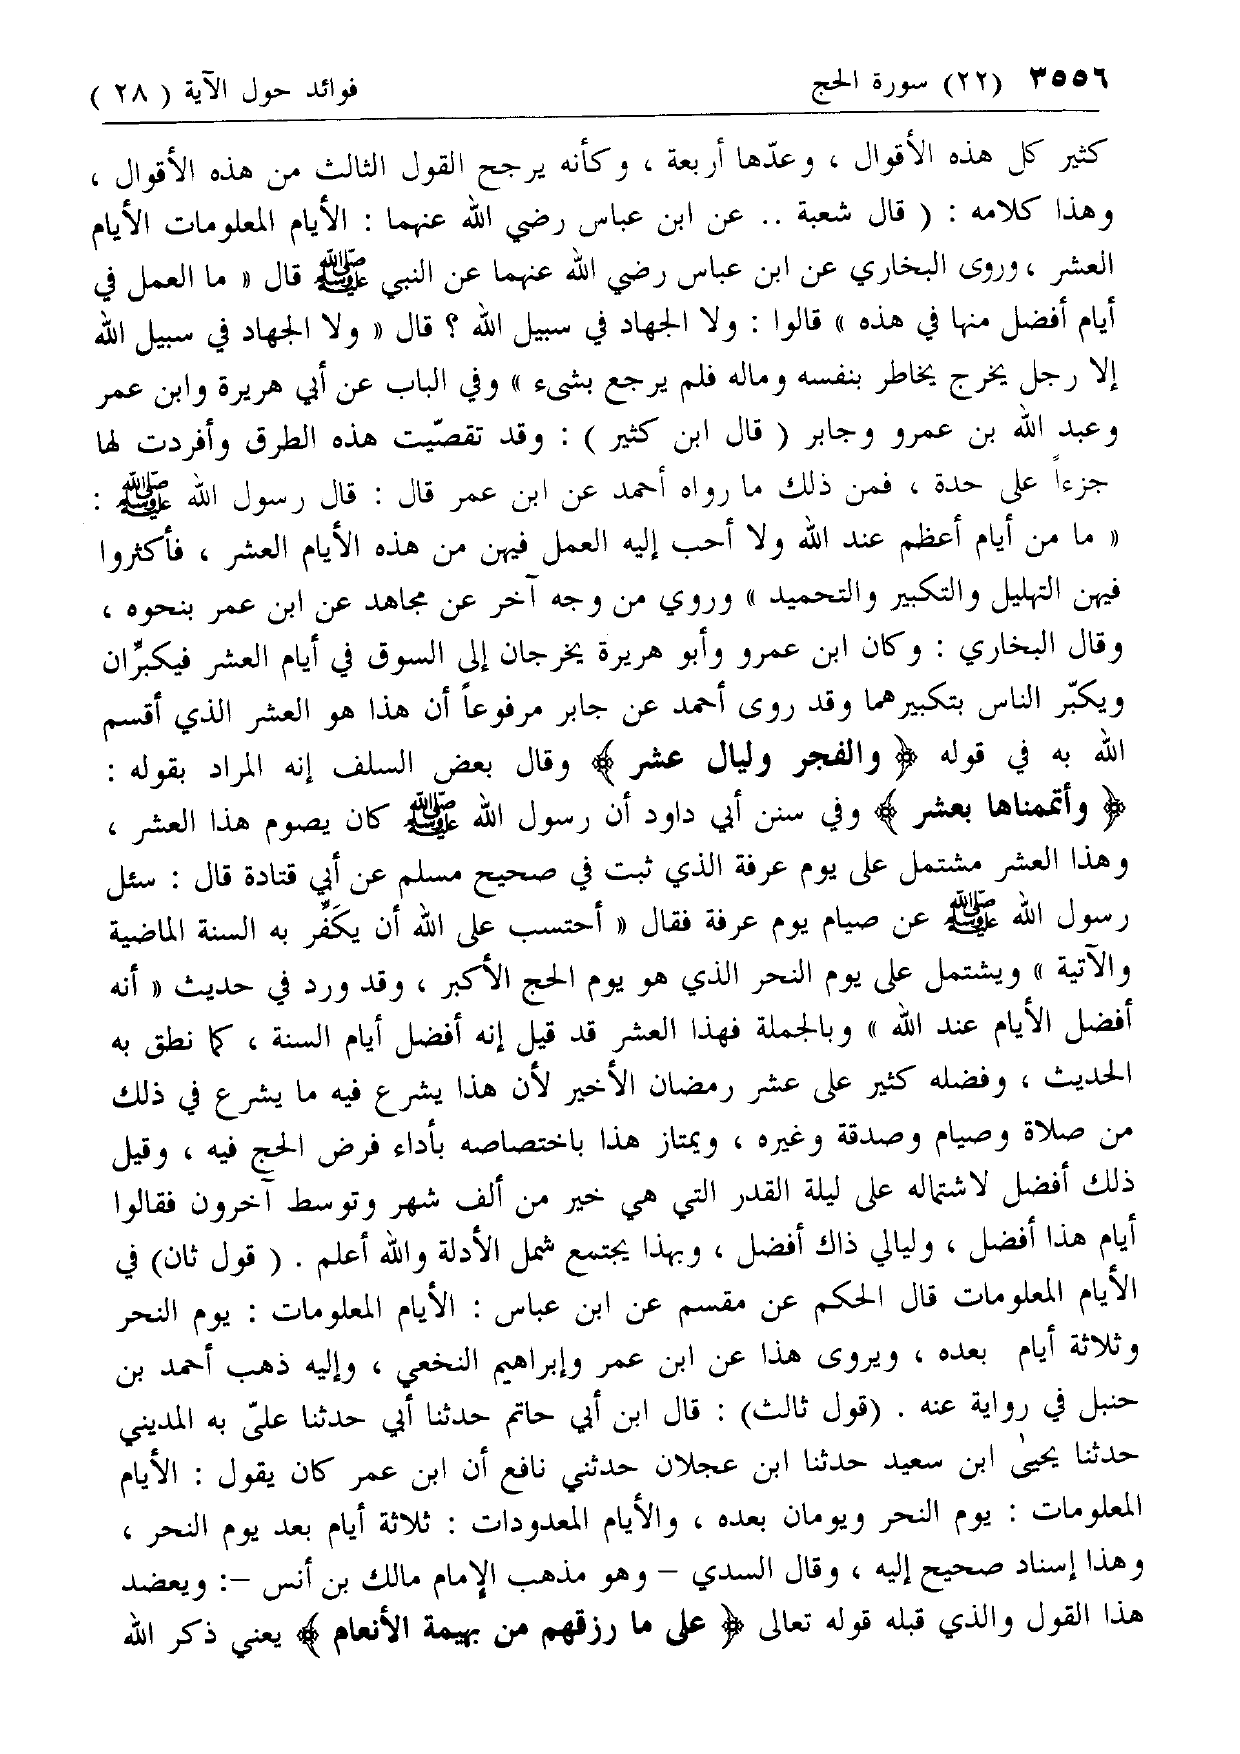 ٣٥٥٦ (٢٢) سورة الحج فوائد حول الآية ( ٢٨ )
كثير كل هذه الأقوال ، وعدّها أربعة ، وكأنه يرجح القول الثالث من هذه الأقوال ،
وهذا كلامه : ( قال شعبة .. عن ابن عباس رضي الله عنهما : الأيام المعلومات الأيام
العشر ، وروى البخاري عن ابن عباس رضي الله عنهما عن النبي ﷺ قال « ما العمل في
أيام أفضل منها في هذه » قالوا : ولا الجهاد في سبيل الله ؟ قال « ولا الجهاد في سبيل الله
إلا رجل يخرج يخاطر بنفسه وماله فلم يرجع بشىء » وفي الباب عن أبي هريرة وابن عمر
وعبد الله بن عمرو وجابر ( قال ابن كثير ) : وقد تقصّيت هذه الطرق وأفردت لها
جزءاً على حدة ، فمن ذلك ما رواه أحمد عن ابن عمر قال : قال رسول الله ﷺ :
« ما من أيام أعظم عند الله ولا أحب إليه العمل فيهن من هذه الأيام العشر ، فأكثروا
فيهن التهليل والتكبير والتحميد » وروي من وجه آخر عن مجاهد عن ابن عمر بنحوه ،
وقال البخاري : وكان ابن عمرو وأبو هريرة يخرجان إلى السوق في أيام العشر فيكبّران
ويكبّر الناس بتكبيرهما وقد روى أحمد عن جابر مرفوعاً أن هذا هو العشر الذي أقسم
الله به في قوله ﴿ والفجر وليال عشر ﴾ وقال بعض السلف إنه المراد بقوله :
﴿ وأتممناها بعشر ﴾ وفي سنن أبي داود أن رسول الله ﷺ كان يصوم هذا العشر ،
وهذا العشر مشتمل على يوم عرفة الذي ثبت في صحيح مسلم عن أبي قتادة قال : سئل
رسول الله ﷺ عن صيام يوم عرفة فقال « أحتسب على الله أن يكَفِّر به السنة الماضية
والآتية » ويشتمل على يوم النحر الذي هو يوم الحج الأكبر ، وقد ورد في حديث « أنه
أفضل الأيام عند الله » وبالجملة فهذا العشر قد قيل إنه أفضل أيام السنة ، كما نطق به
الحديث ، وفضله كثير على عشر رمضان الأخير لأن هذا يشرع فيه ما يشرع في ذلك
من صلاة وصيام وصدقة وغيره ، ويمتاز هذا باختصاصه بأداء فرض الحج فيه ، وقيل
ذلك أفضل لاشتماله على ليلة القدر التي هي خير من ألف شهر وتوسط آخرون فقالوا
أيام هذا أفضل ، وليالي ذاك أفضل ، وبهذا يجتمع شمل الأدلة والله أعلم . ( قول ثان) في
الأيام المعلومات قال الحكم عن مقسم عن ابن عباس : الأيام المعلومات : يوم النحر
وثلاثة أيام بعده ، ويروى هذا عن ابن عمر وإبراهيم النخعي ، وإليه ذهب أحمد بن
حنبل في رواية عنه . (قول ثالث) : قال ابن أبي حاتم حدثنا أبي حدثنا عليّ به المديني
حدثنا يحيىٰ ابن سعيد حدثنا ابن عجلان حدثني نافع أن ابن عمر كان يقول : الأيام
المعلومات : يوم النحر ويومان بعده ، والأيام المعدودات : ثلاثة أيام بعد يوم النحر ،
وهذا إسناد صحيح إليه ، وقال السدي – وهو مذهب الإمام مالك بن أنس –: ويعضد
هذا القول والذي قبله قوله تعالى ﴿ على ما رزقهم من بهيمة الأنعام ﴾ يعني ذكر الله